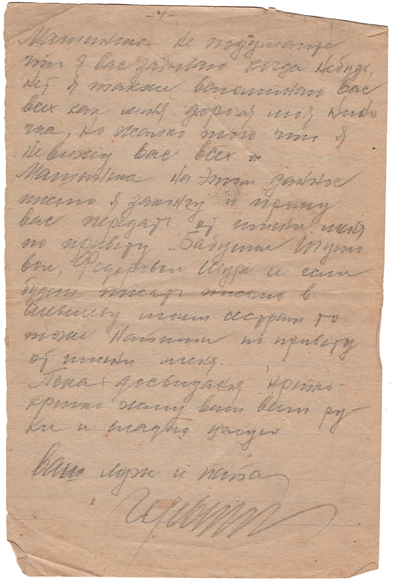 -4-
Машинька не подумайте
что я вас забываю когда небудь,
нет я также вспоминаю вас
всех как меня дорогая моя
но жалко того что я
невижу вас всех
Машинька на этом данное
письмо я закончу и прошу
вас передать от имени меня
по привету Бабушке
Федоровой Шуре и если
будеш писать письмо в
моим сестрам то
тоже Напиши по привету
от имени меня.
Пока досвидания, крепко-
крепко жму вам всем ру
ки и сладко целую
Ваш муж и папа